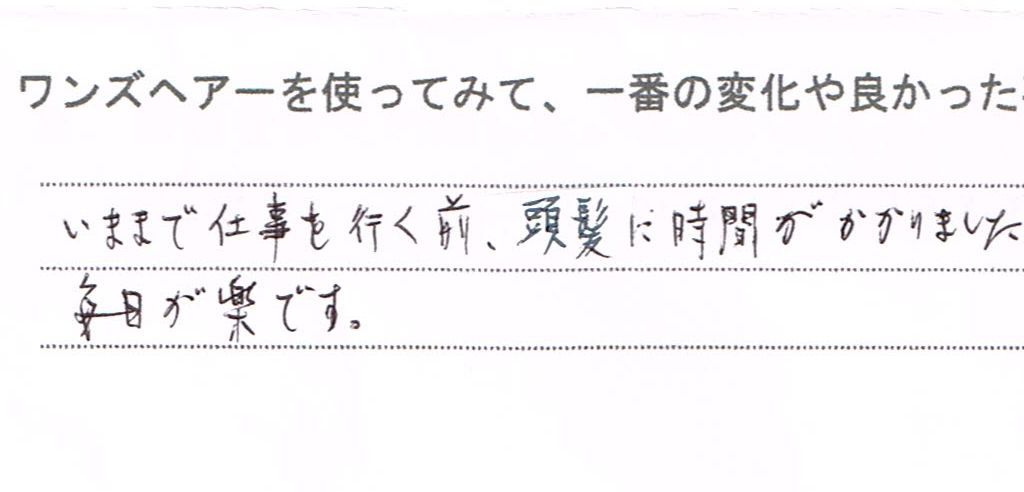 ワンズヘアーを使ってみて、一番の変化や良かった
いままで仕事も行く前、頭髪に時間がかかりました
毎日が楽です。